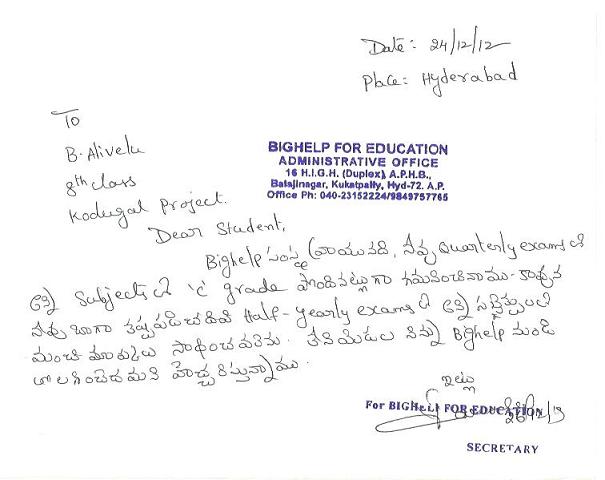 Date: 24/12/12
Place: Hyderabad
To
B. Alivelu
8th class
Kodugal Project.
BIGHELP FOR EDUCATION
ADMINISTRATIVE OFFICE
16 H.I.G.H. (Duplex), A.P.H.B.,
Balajinagar, Kukatpally, Hyd-72. A.P.
Office Ph: 040-23152224/9849757765
Dear Student,
Bighelp సంస్థ వ్రాయునది, నీవు Quarterly exams లో
Subjects లో 'C' grade పొందినట్లుగా గమనించినాము. కావున
నీవు బాగా కష్టపడి చదివి Half-yearly exams లో అన్ని సబ్జెక్టులలో
మంచి మార్కులు సాధించవలెను. లేనియెడల నిన్ను Bighelp నుండి
తొలగించెదమని హెచ్చరిస్తున్నాము.
ఇట్లు
For BIGHELP FOR EDUCATION
SECRETARY